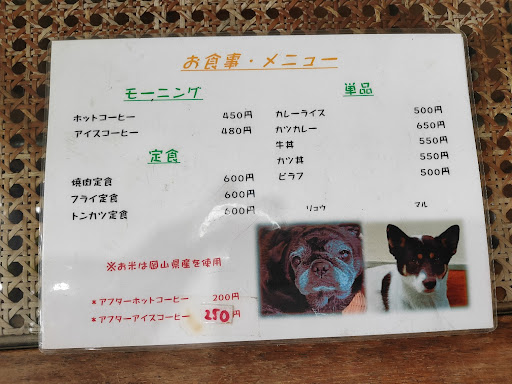 お食事・メニュー
モーニング
ホットコーヒー 450円
アイスコーヒー 480円
定食
焼肉定食 600円
フライ定食 600円
トンカツ定食 600円
※お米は岡山県産を使用
*アフターホットコーヒー 200円
*アフターアイスコーヒー 250円
単品
カレーライス 500円
カツカレー 650円
牛丼 550円
カツ丼 550円
ピラフ 500円
リョウ マル